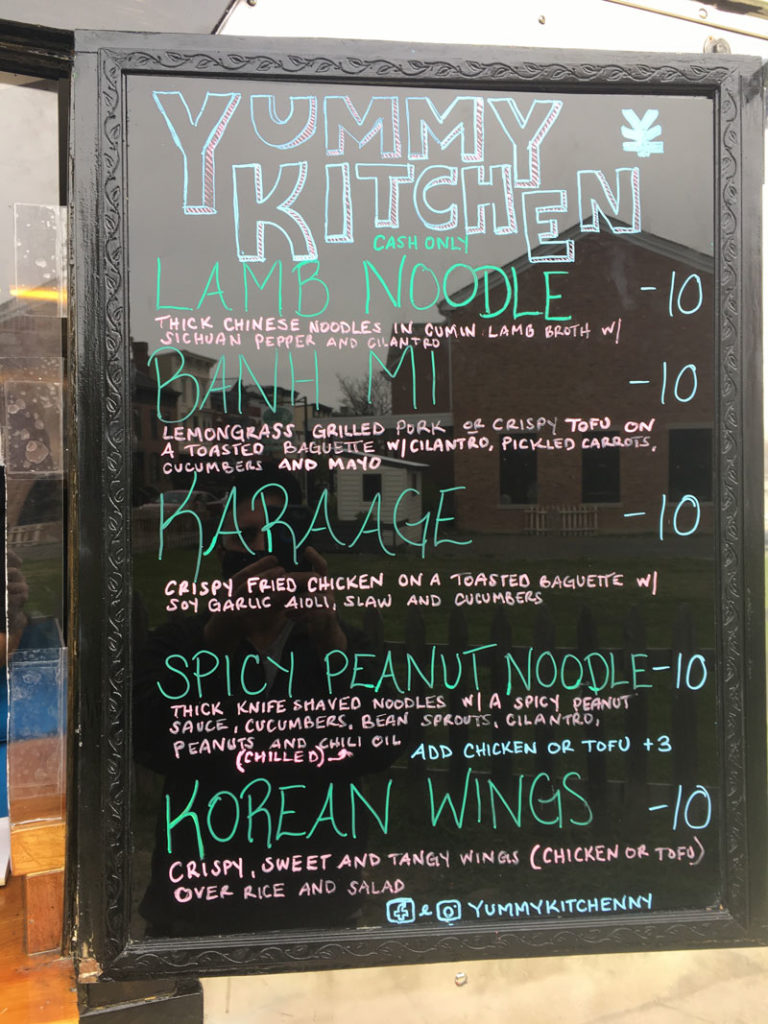 YUMMY
KITCHEN
CASH ONLY
LAMB NOODLE -10
THICK CHINESE NOODLES IN CUMIN LAMB BROTH W/
SICHUAN PEPPER AND CILANTRO
BANH MI -10
LEMONGRASS GRILLED PORK OR CRISPY TOFU ON
A TOASTED BAGUETTE W/CILANTRO, PICKLED CARROTS,
CUCUMBERS AND MAYO
KARAAGE -10
CRISPY FRIED CHICKEN ON A TOASTED BAGUETTE W/
SOY GARLIC AIOLI, SLAW AND CUCUMBERS
SPICY PEANUT NOODLE -10
THICK KNIFE SHAVED NOODLES W/ A SPICY PEANUT
SAUCE, CUCUMBERS, BEAN SPROUTS, CILANTRO,
PEANUTS AND CHILI OIL
(CHILLED) ADD CHICKEN OR TOFU +3
KOREAN WINGS -10
CRISPY, SWEET AND TANGY WINGS (CHICKEN OR TOFU)
OVER RICE AND SALAD
& YUMMYKITCHENNY